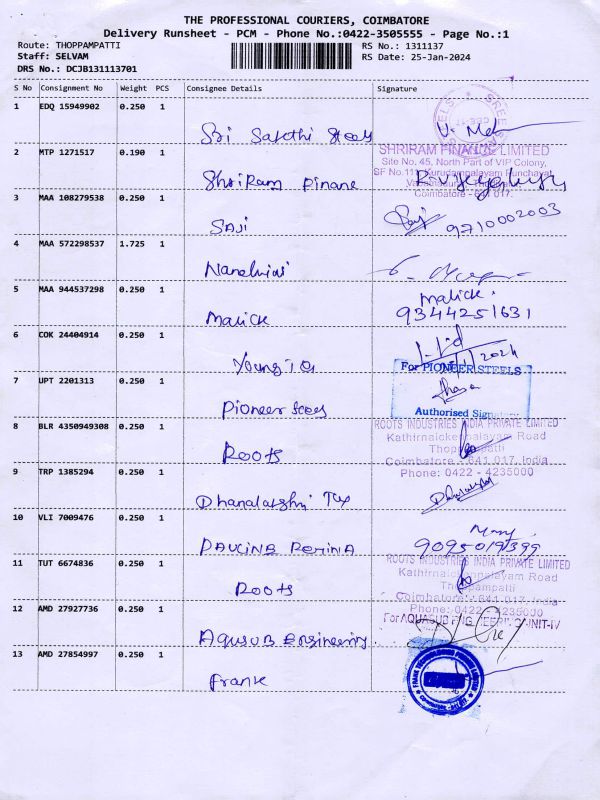 THE PROFESSIONAL COURIERS, COIMBATORE
Delivery Runsheet - PCM - Phone No.:0422-3505555 - Page No.:1
Route: THOPPAMPATTI
Staff: SELVAM
DRS No.: DCJB131113701
RS No.: 1311137
RS Date: 25-Jan-2024
S No Consignment No Weight PCS Consignee Details Signature
1 EDQ 15949902 0.250 1
Sri Sakthi Steels
2 MTP 1271517 0.190 1
SHRIRAM FINANCE LIMITED
Site No. 45, North Part of VIP Colony,
Coimbatore - 641 017.
Shriram Finane
3 MAA 108279538 0.250 1
SAJI
9710002003
4 MAA 572298537 1.725 1
5 MAA 944537298 0.250 1
Malick
Malick.
9344251631
6 COK 24404914 0.250 1
Young
7 UPT 2201313 0.250 1
Pioneer steels
For PIONEER STEELS
Authorised Signatory
8 BLR 4350949308 0.250 1
Roots
ROOTS INDUSTRIES INDIA PRIVATE LIMITED
Kathirnaickenpalayam Road
Thoppampatti
Coimbatore - 641 017, India
Phone: 0422 - 4235000
9 TRP 1385294 0.250 1
Dhanalakshmi Tex
10 VLI 7009476 0.250 1
11 TUT 6674836 0.250 1
Roots
ROOTS INDUSTRIES INDIA PRIVATE LIMITED
Kathirnaickenpalayam Road
Thoppampatti
Coimbatore - 641 017, India
Phone: 0422 - 4235000
12 AMD 27927736 0.250 1
Aqusub Engineering.
13 AMD 27854997 0.250 1
Frank